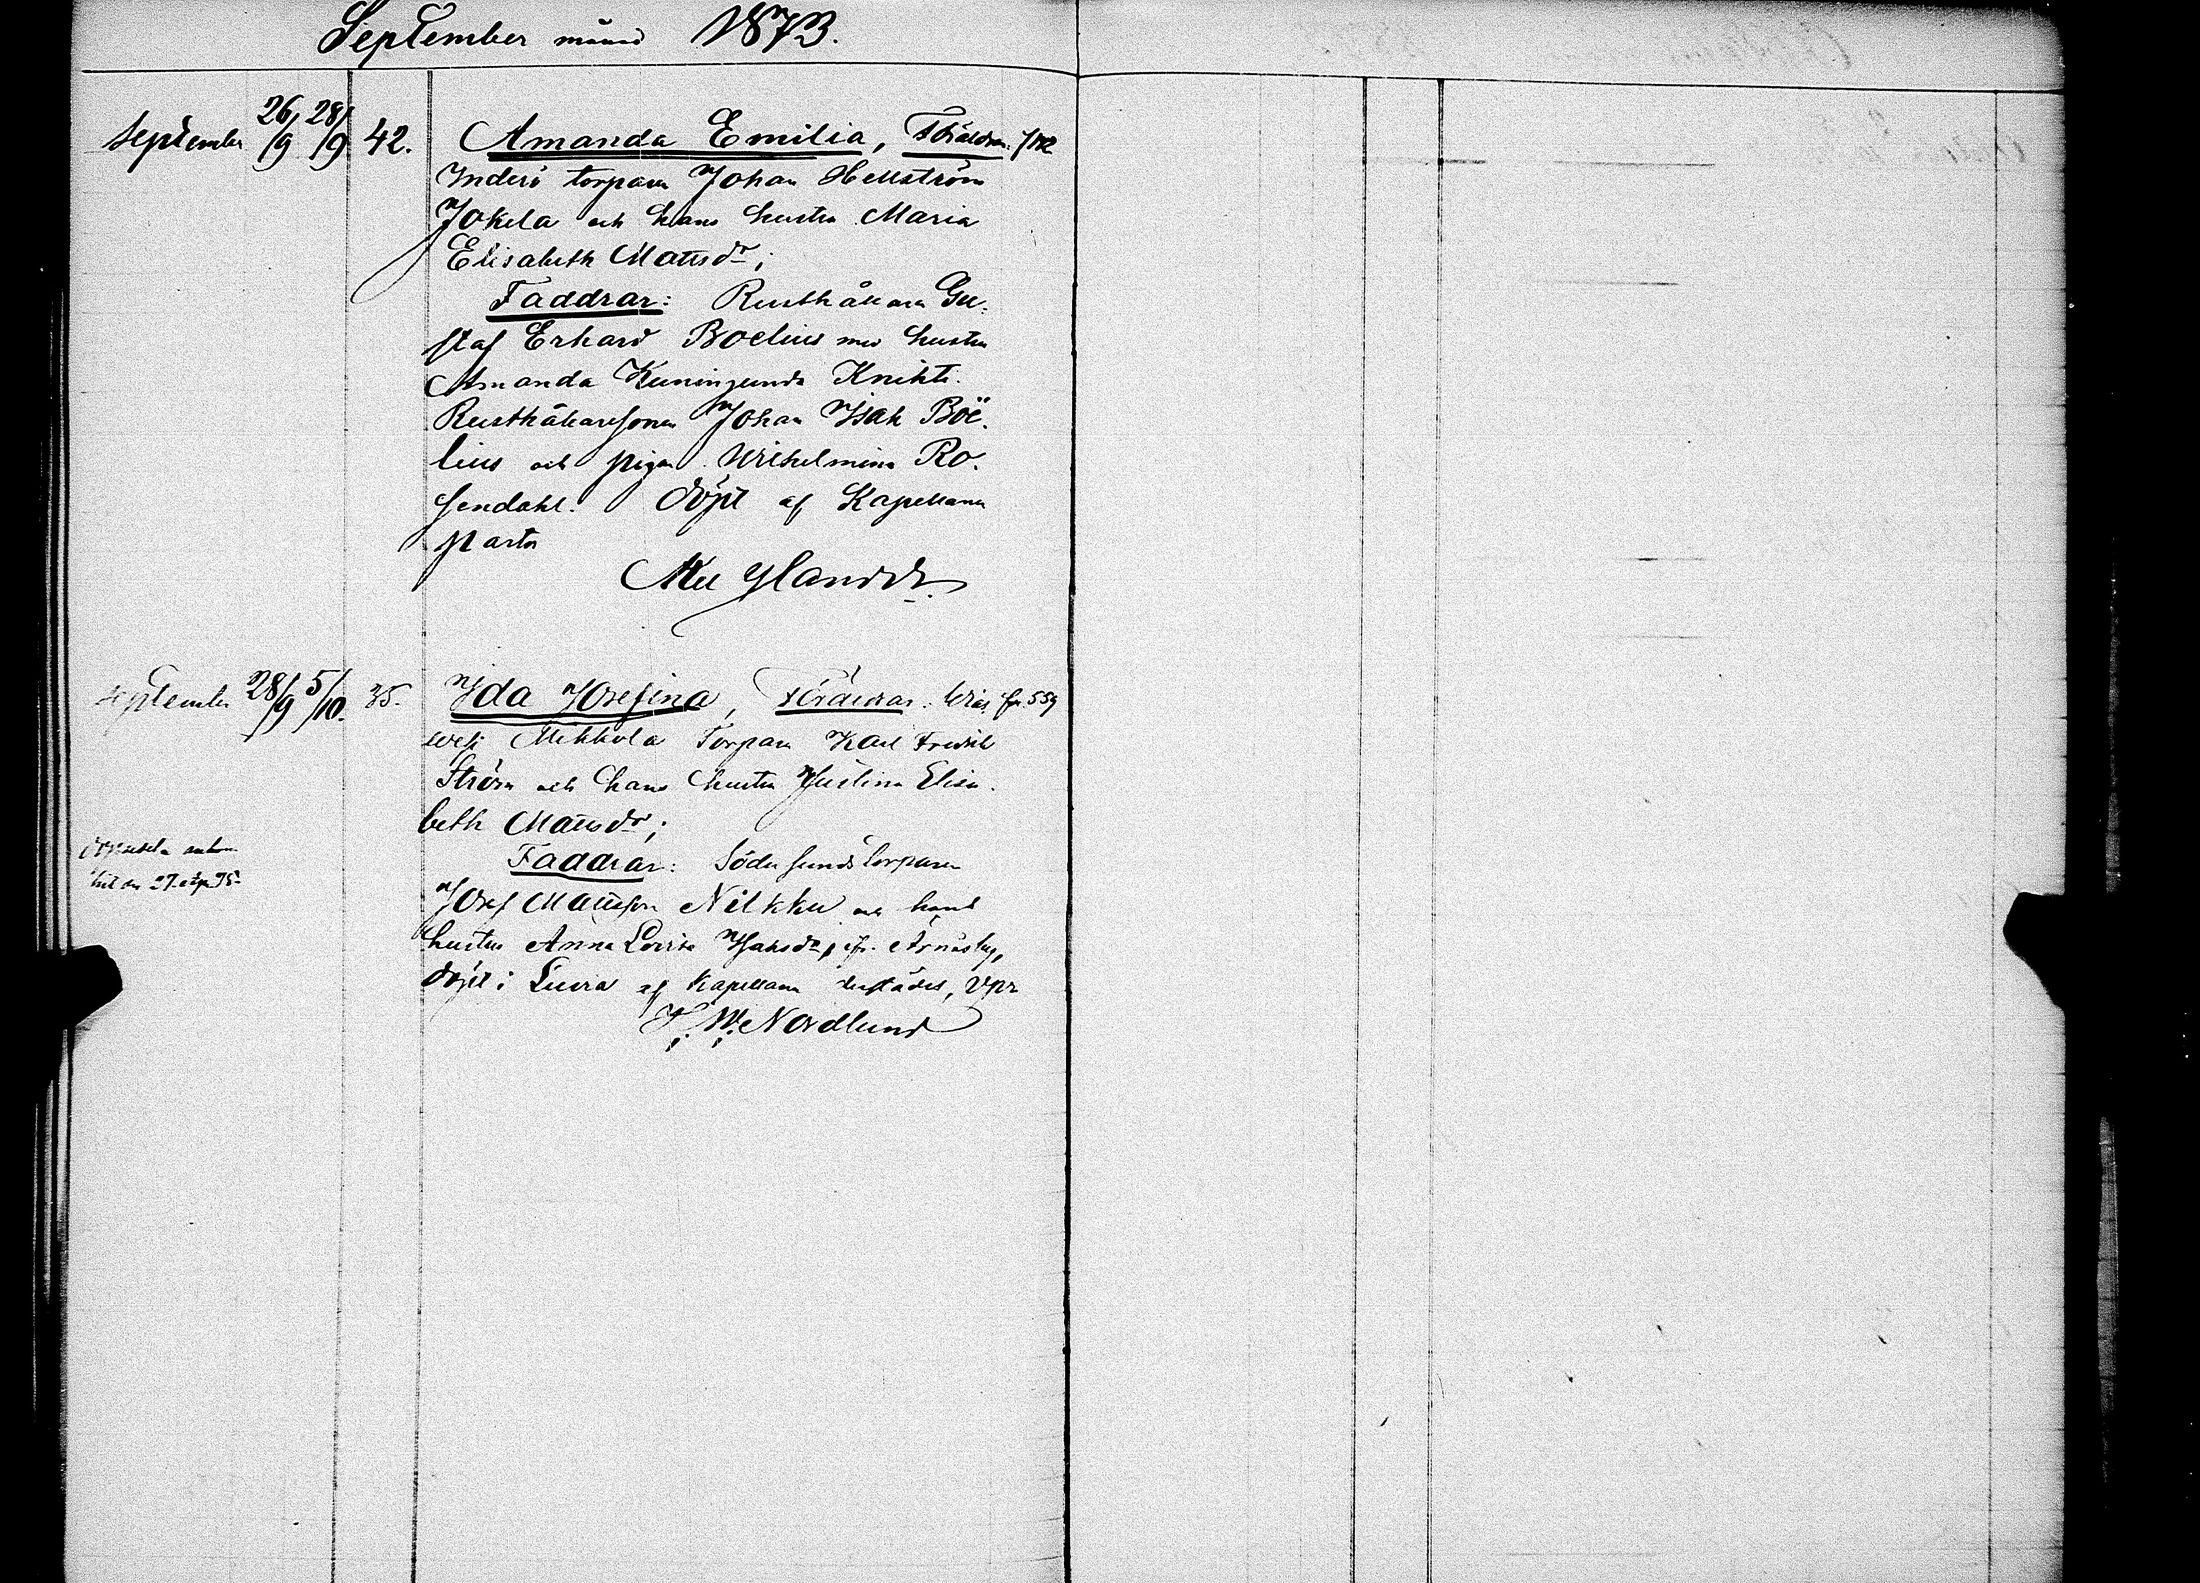 September månad 1873.
September 26/9 28/9 42. Amanda Emilia, Föräldrar:
Inderö torparen Johan Hellström
Jokela och hans hustru Maria
Elisabeth Mattsdr;
Faddrar: Rusthållaren Gu-
staf Erhard Boelius med hustru
Amanda Kuningunda Knihti.
Rusthållaresonen Johan Isak Böe-
lius och pigan Wilhelmina Ro-
sendahl. Döpt af Kapellanen
pastor
Ylander.
September 28/9 5/10. 35. Ida Josefina, Föräldrar: fr. 559
Mikkola Torparen Karl Fredrik
Ström och hans hustru Justina Elisa-
beth Mattsdr;
Faddrar: Södersunds torparen
Josef Mattsson Nilkku och hans
hustru Anna Lovisa Isaksdr,
döpt i Luvia af Kapellanen derstädes, vpr
F. W. Nordlund